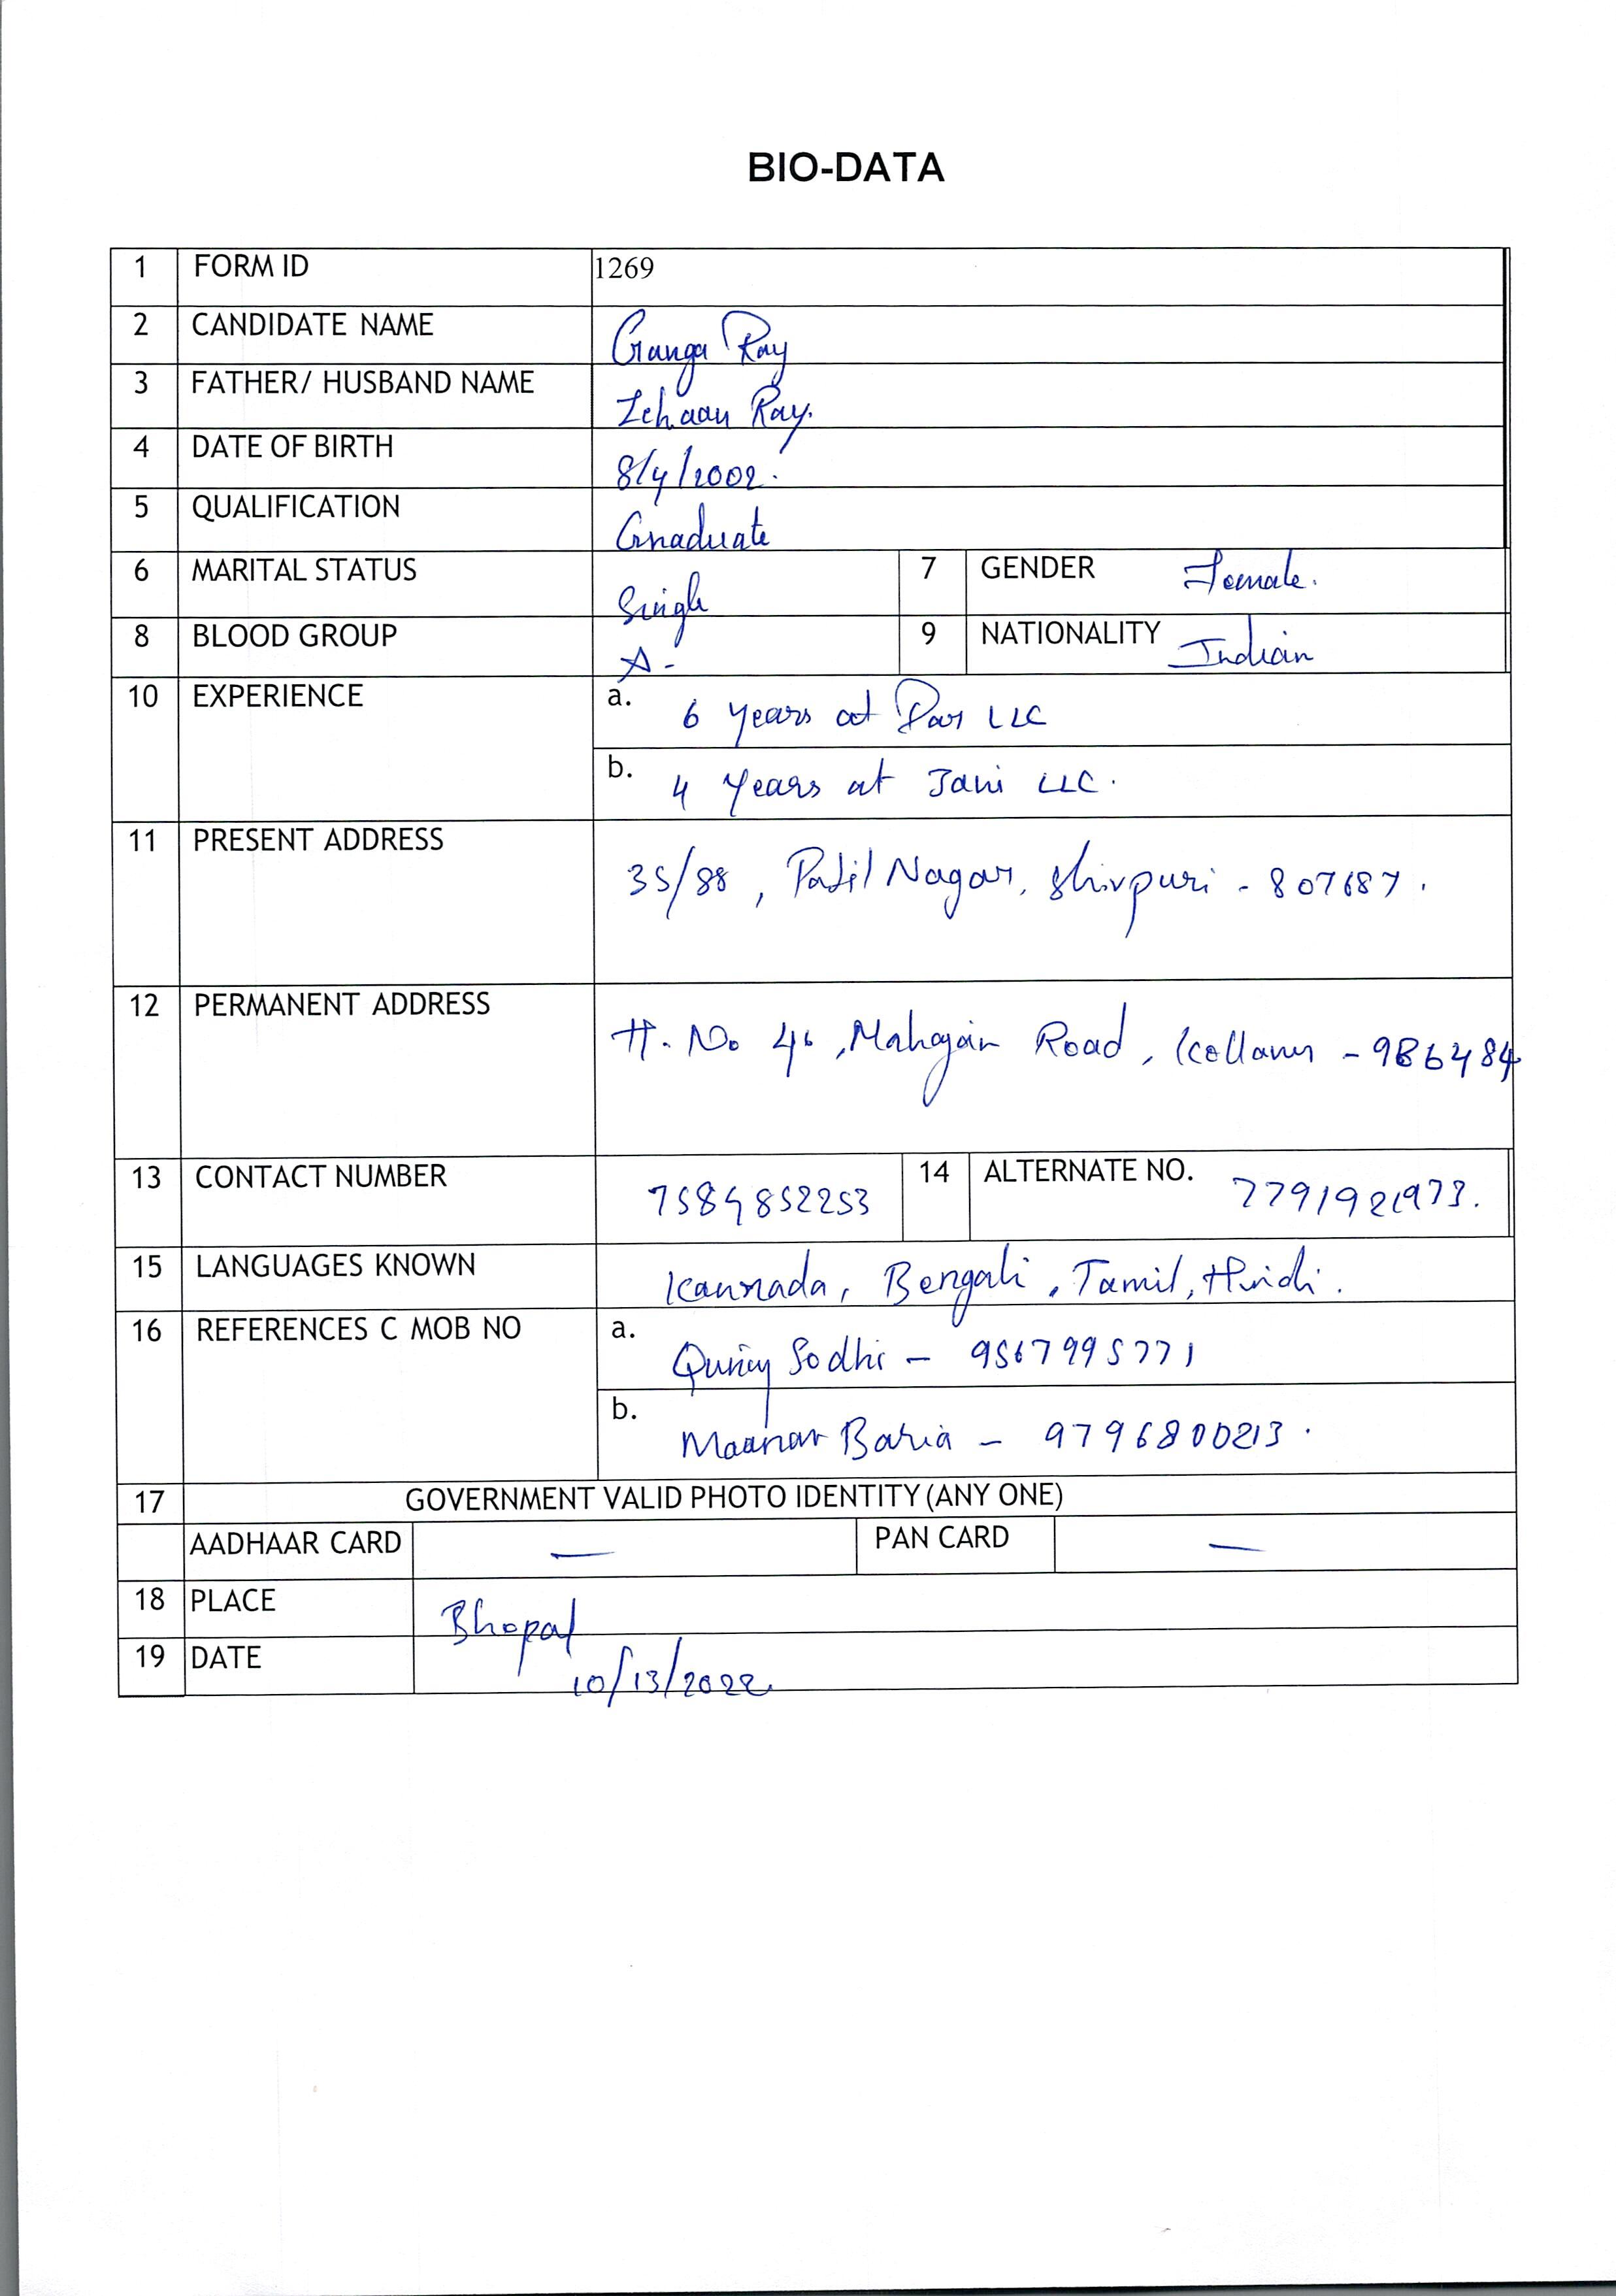 BIO-DATA
1 FORM ID 1269
2 CANDIDATE NAME Ganga Ray
3 FATHER/ HUSBAND NAME Zehaan Ray.
4 DATE OF BIRTH 8/4/2002.
5 QUALIFICATION Graduate
6 MARITAL STATUS Single 7 GENDER Female.
8 BLOOD GROUP A- 9 NATIONALITY Indian
10 EXPERIENCE a. 6 years at LLC
b. 4 Years at Jani LLC.
11 PRESENT ADDRESS 35/88, Patil Nagar, Shivpuri - 807687.
12 PERMANENT ADDRESS H. No 46, Mahajan Road, Kollam - 986484
13 CONTACT NUMBER 7589852253 14 ALTERNATE NO. 7791921973.
15 LANGUAGES KNOWN Kannada, Bengali, Tamil, Hindi.
16 REFERENCES C MOB NO a. Sodhi - 9567995771
b. Baria - 9796800213.
17 GOVERNMENT VALID PHOTO IDENTITY (ANY ONE)
AADHAAR CARD — PAN CARD —
18 PLACE Bhopal
19 DATE 10/13/2022.